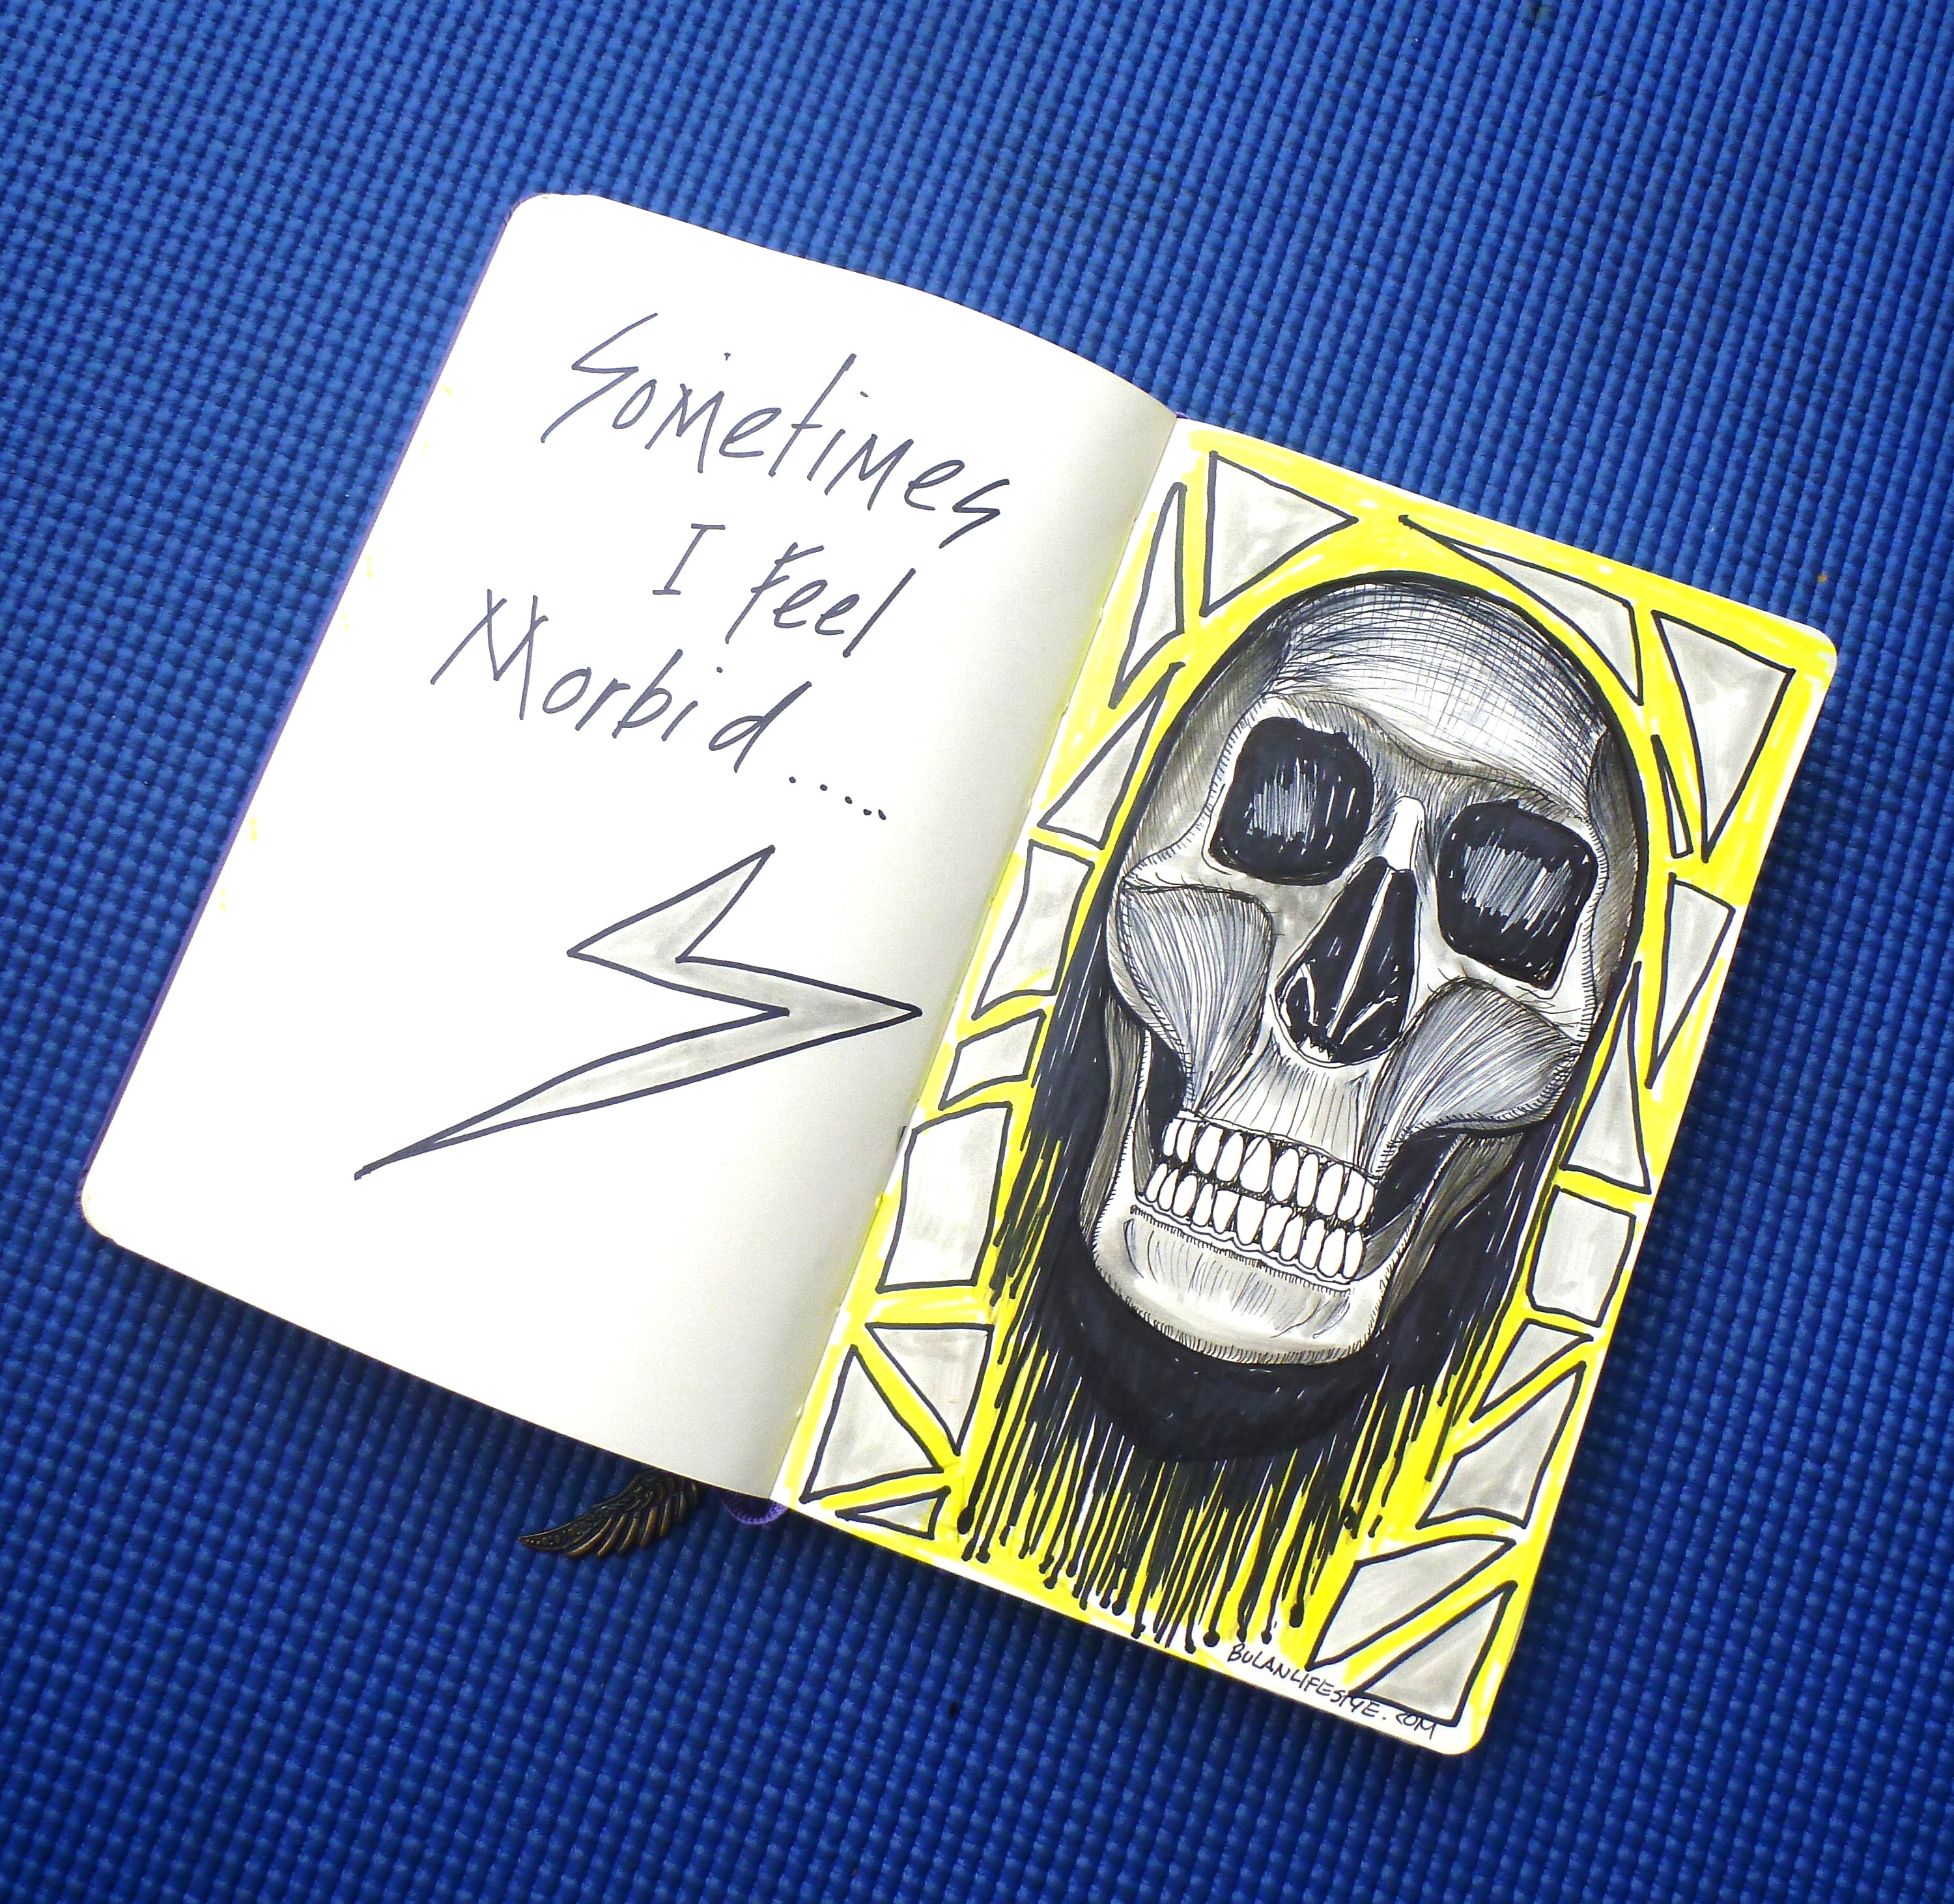 Sometimes
I Feel
Morbid.....
BULANLIFESTYE.COM